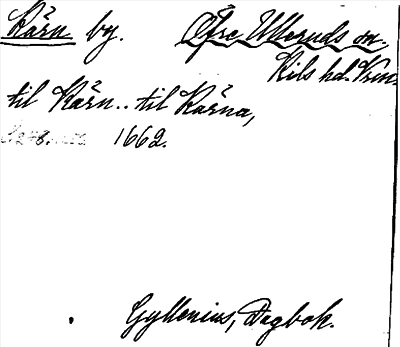 Kärn by. Öfre Ulleruds sn.
Kils hd. Vrml.
til Kärn.. til Kärna,
1662.
Gyllenius, Dagbok.